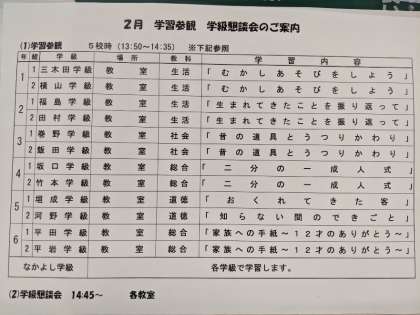 2月 学習参観 学級懇談会のご案内
(1)学習参観 5校時(13:50～14:35) ※下記参照
年 組 学級 場所 教科 学習内容
1 1 三木田学級 教室 生活 「むかしあそびをしよう」
2 横山学級 教室 生活 「むかしあそびをしよう」
2 1 福島学級 教室 生活 「生まれてきたことを振り返って」
2 田村学級 教室 生活 「生まれてきたことを振り返って」
3 1 巻野学級 教室 社会 「昔の道具とうつりかわり」
2 飯田学級 教室 社会 「昔の道具とうつりかわり」
4 1 坂口学級 教室 総合 「二分の一成人式」
2 竹本学級 教室 総合 「二分の一成人式」
5 1 垣成学級 教室 道徳 「おくれてきた客」
2 河野学級 教室 道徳 「知らない間のできごと」
6 1 平田学級 教室 総合 「家族への手紙～12才のありがとう～」
2 平岩学級 教室 総合 「家族への手紙～12才のありがとう～」
なかよし学級 各学級で学習します。
(2)学級懇談会 14:45～ 各教室